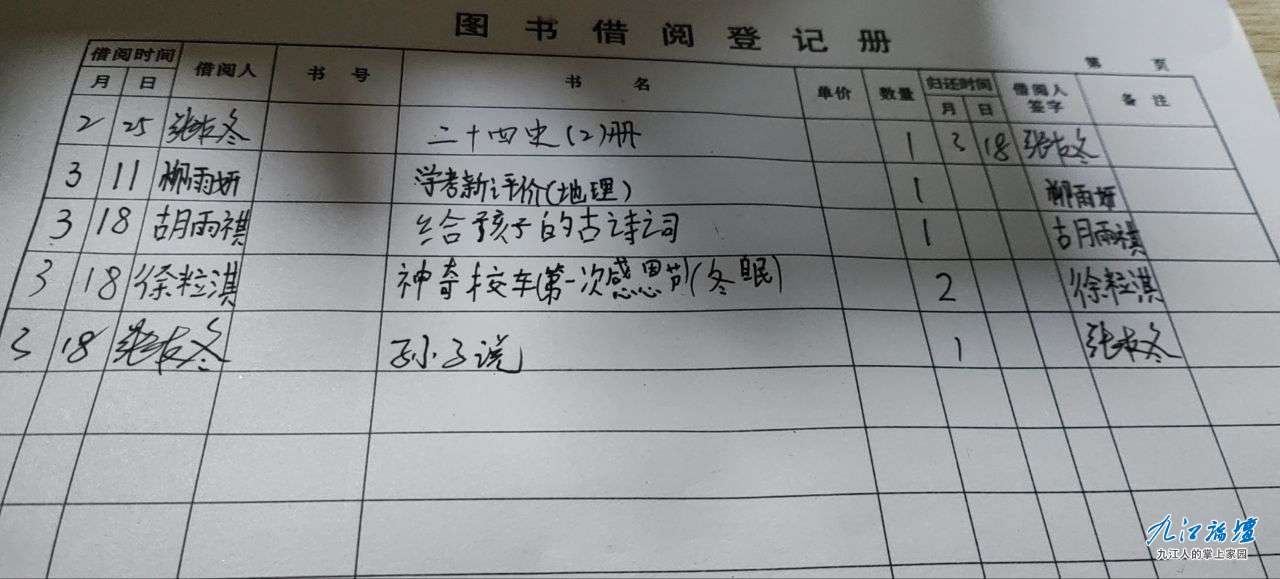 图书借阅登记册
第 页
借阅时间 借阅人 书号 书名 单价 数量 归还时间 借阅人签字 备注
月 日 月 日
2 25 张友冬 二十四史(2)册 1 3 18 张友冬
3 11 柳雨妍 学考新评价(地理) 1 柳雨妍
3 18 胡雨祺 给孩子的古诗词 1 胡雨祺
3 18 徐粒淇 神奇校车(第一次感恩节)(冬眠) 2 徐粒淇
3 18 张友冬 孙子说 1 张友冬
九江论坛
九江人的掌上家园